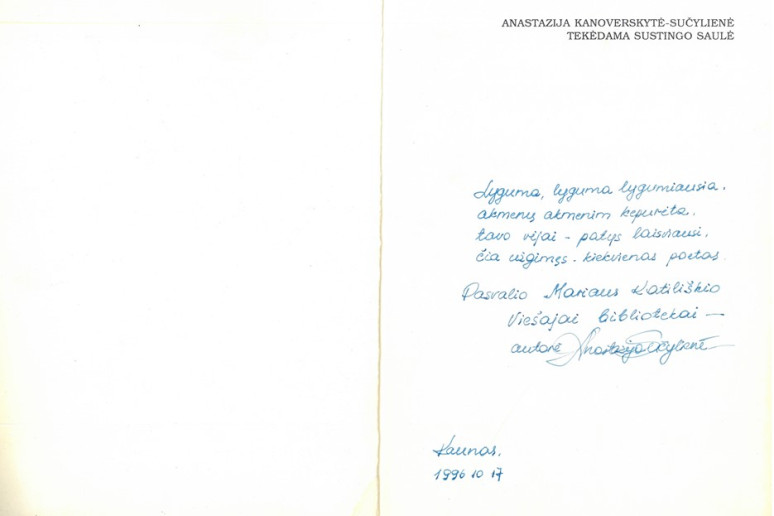 ANASTAZIJA KANOVERSKYTĖ-SUČYLIENĖ
TEKĖDAMA SUSTINGO SAULĖ
Lyguma, lyguma lygumiausia.
akmenų akmenim kepurėta.
tavo vėjai - patys laisviausi.
čia užgimęs - kiekvienas poetas.
Pasvalio Mariaus Katiliškio
Viešajai bibliotekai —
autorė Anastazija Sučylienė
Kaunas.
1996 10 17